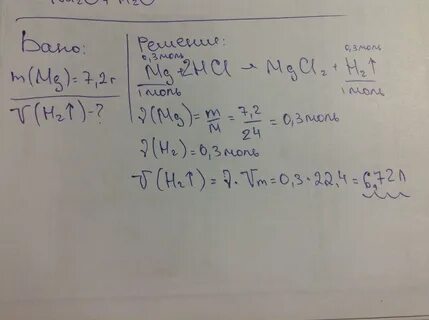 Дано:
m(Mg)=7,2г
V(H₂↑)-?
Решение:
0,3моль 0,3моль
Mg+2HCl → MgCl₂ + H₂↑
1моль 1моль
ν(Mg)=m/M=7,2/24=0,3моль
ν(H₂)=0,3моль
V(H₂↑)=ν·Vm=0,3·22,4=6,72л